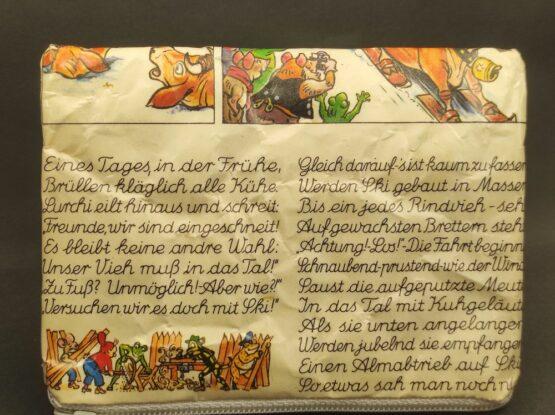 Eines Tages, in der Frühe,
Brüllen kläglich alle Kühe.
Lurchi eilt hinaus und schreit:
„Freunde, wir sind eingeschneit!
Es bleibt keine andre Wahl:
Unser Vieh muß in das Tal!"
„Zu Fuß? Unmöglich! Aber wie?"
„Versuchen wir es doch mit Ski!"
Gleich darauf - 's ist kaum zu fassen
Werden Ski gebaut in Massen
Bis ein jedes Rindvieh - seh
Auf gewachsten Brettern steh
„Achtung! - Los!" - Die Fahrt beginn
Schnaubend - prustend - wie der Wind
Saust die aufgeputzte Meut
In das Tal mit Kuhgeläut
Als sie unten angelangen
Werden jubelnd sie empfangen
Einen Almabtrieb auf Ski
So etwas sah man noch ni